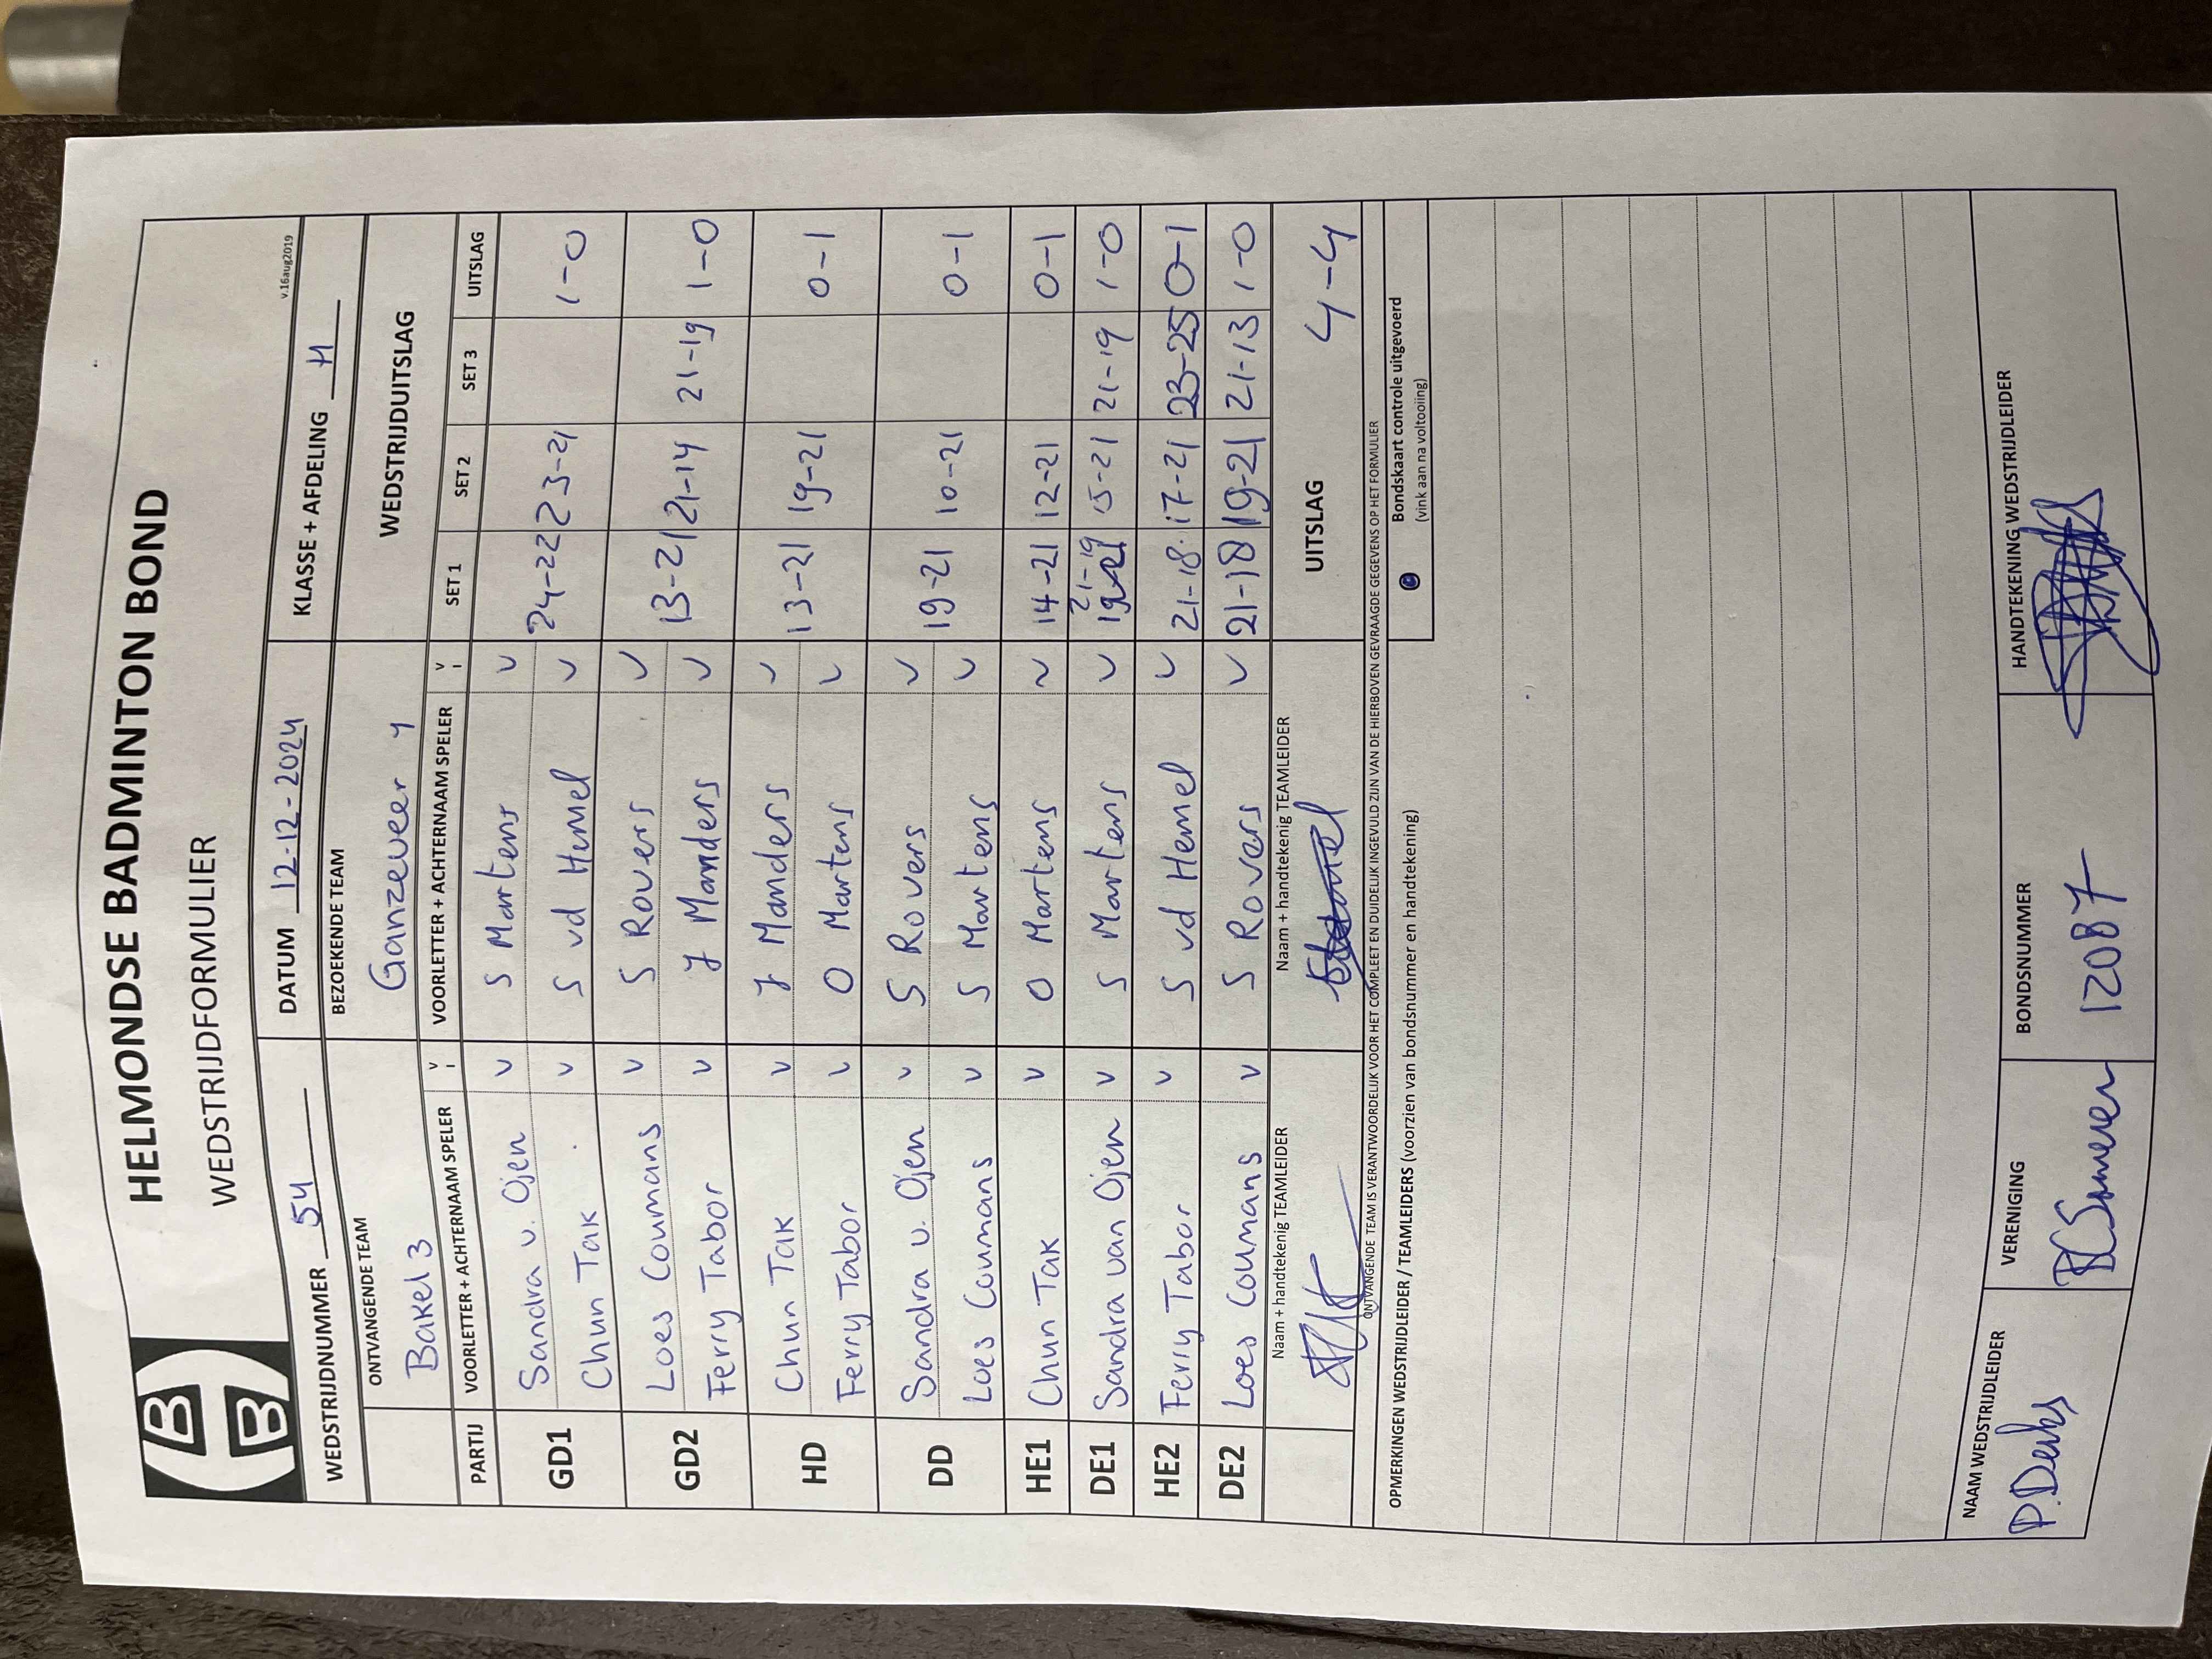 HELMONDSE BADMINTON BOND
WEDSTRIJDFORMULIER
v.16aug2019
WEDSTRIJDNUMMER 54 DATUM 12-12-2024 KLASSE + AFDELING H
ONTVANGENDE TEAM BEZOEKENDE TEAM WEDSTRIJDUITSLAG
Bakel 3 Ganzeveer 4
PARTIJ VOORLETTER + ACHTERNAAM SPELER V VOORLETTER + ACHTERNAAM SPELER V SET 1 SET 2 SET 3 UITSLAG
GD1 Sandra v. Ojen v S Martens v 24-22 23-21 1-0
Chun Tak v S vd Hemel v
GD2 Loes Coumans v S Rovers v 13-21 21-14 21-19 1-0
Ferry Tabor v J Manders v
HD Chun Tak v J Manders v 13-21 19-21 0-1
Ferry Tabor v O Martens v
DD Sandra v. Ojen v S Rovers v 19-21 10-21 0-1
Loes Coumans v S Martens v
HE1 Chun Tak v O Martens v 14-21 12-21 0-1
DE1 Sandra van Ojen v S Martens v 21-19 15-21 21-19 1-0
HE2 Ferry Tabor v S vd Hemel v 21-18 17-21 23-25 0-1
DE2 Loes Coumans v S Rovers v 21-18 19-21 21-13 1-0
Naam + handtekenig TEAMLEIDER Naam + handtekenig TEAMLEIDER UITSLAG 4-4
ONTVANGENDE TEAM IS VERANTWOORDELIJK VOOR HET COMPLEET EN DUIDELIJK INGEVULD ZIJN VAN DE HIERBOVEN GEVRAAGDE GEGEVENS OP HET FORMULIER
OPMERKINGEN WEDSTRIJDLEIDER / TEAMLEIDERS (voorzien van bondsnummer en handtekening)
Bondskaart controle uitgevoerd
(vink aan na voltooiing)
NAAM WEDSTRIJDLEIDER VERENIGING BONDSNUMMER HANDTEKENING WEDSTRIJDLEIDER
P. Derks BC Someren 12087